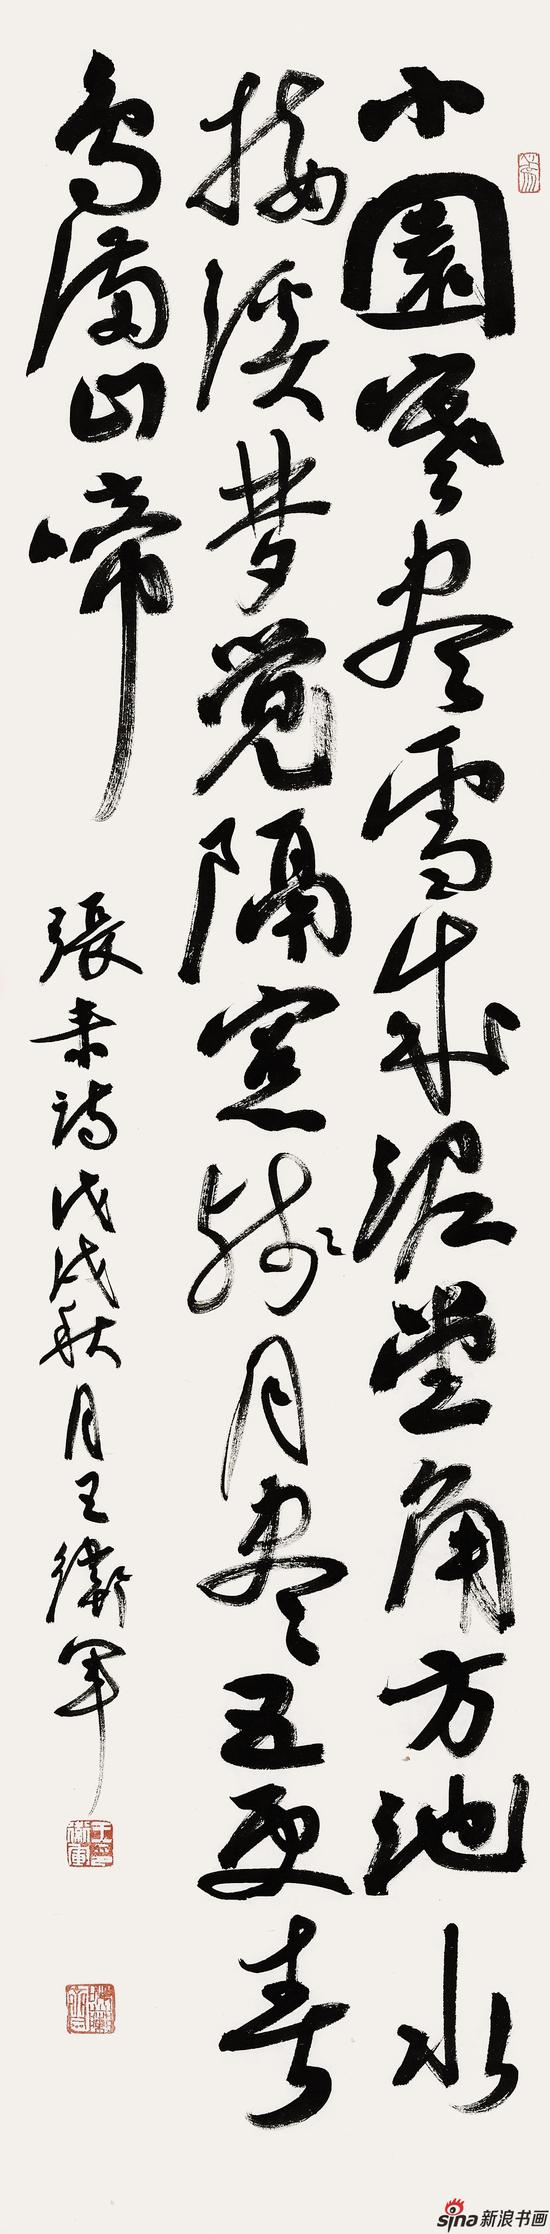 小園寒盡雪成泥堂角方池水
接溪梦觉隔窓残月盡五更春
鳥滿山啼
張耒詩戊戌秋月王衛軍
sina新浪书画